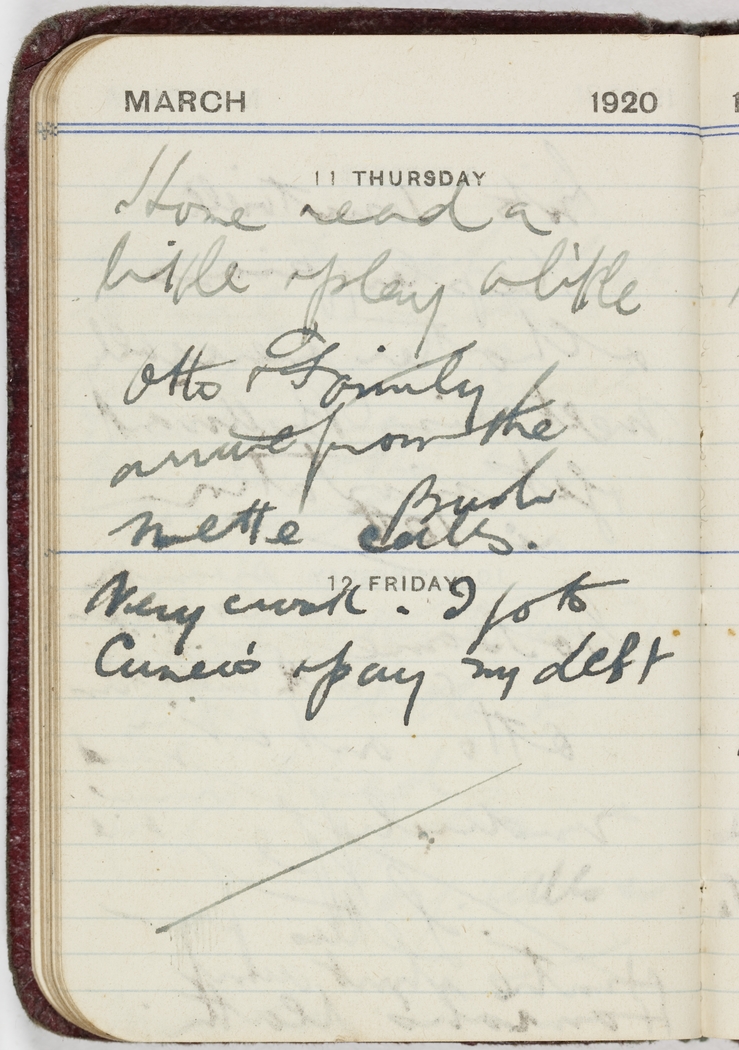 MARCH 1920
11 THURSDAY
Home read a
little & play a little
Otto & Family
arrive from the
Bush
Nette calls.
12 FRIDAY
Very crook. I go to
Cuneo's & pay my debt